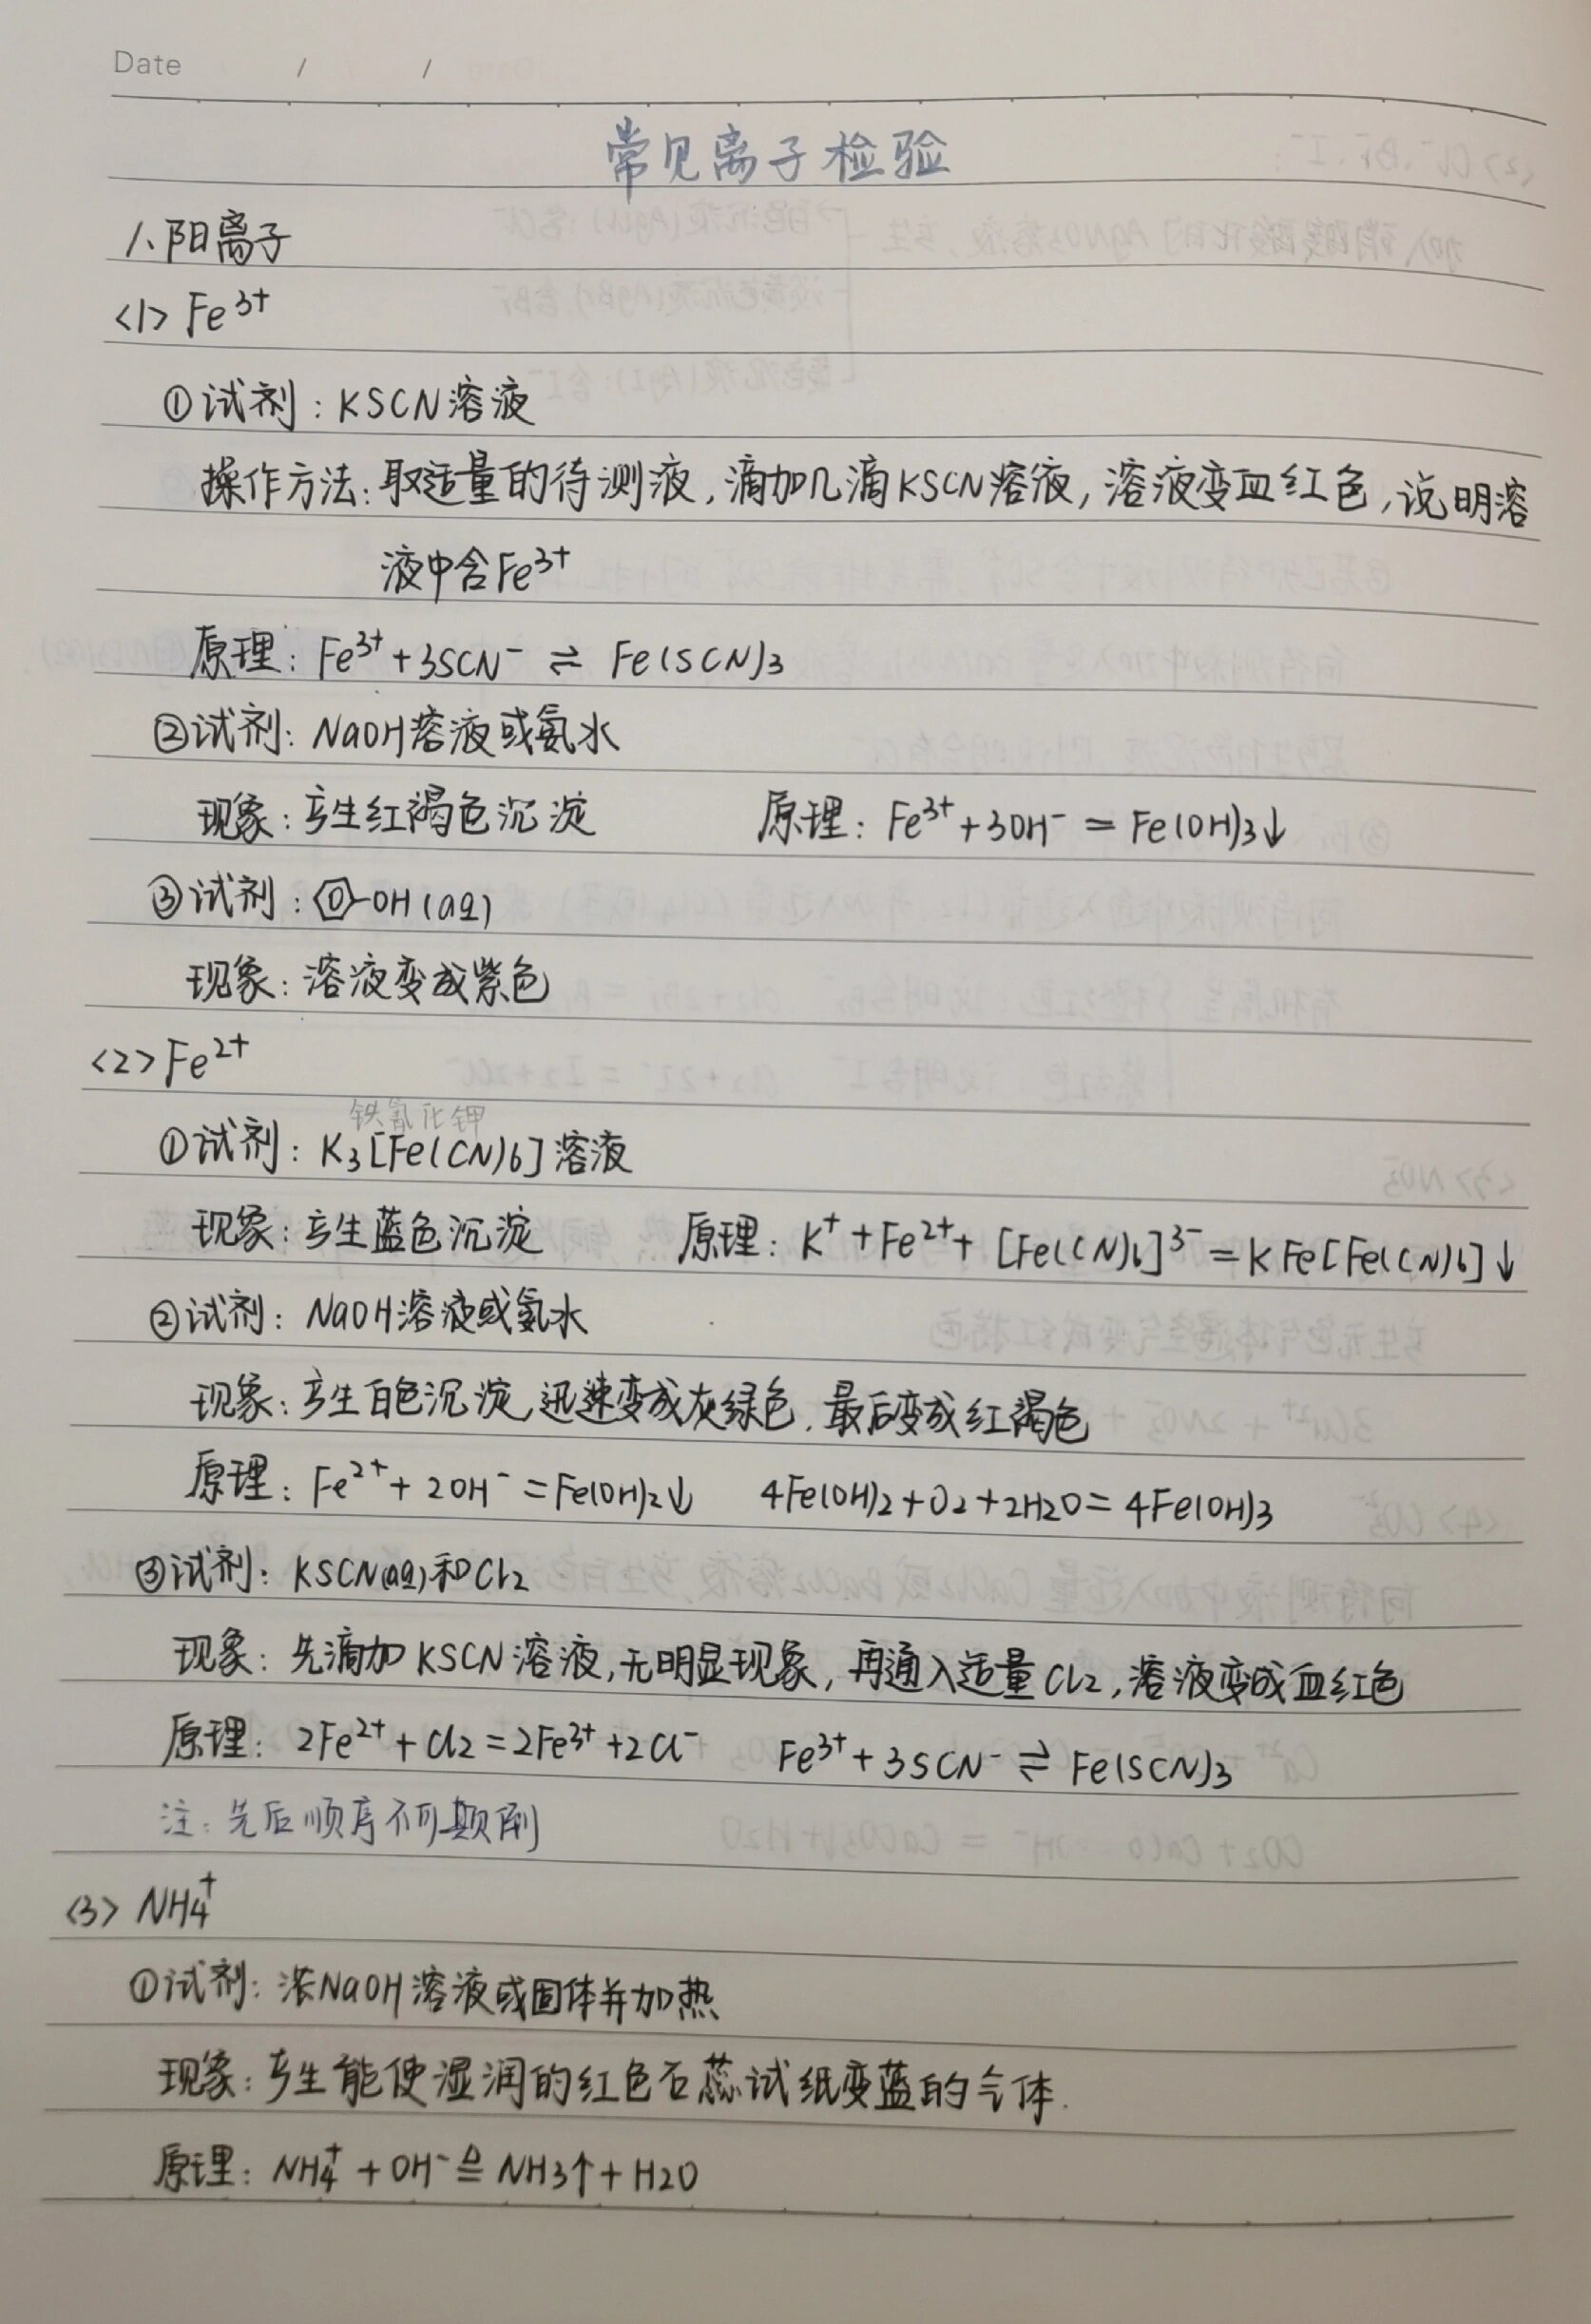 Date / /
常见离子检验
1、阳离子
<1> Fe³⁺
①试剂：KSCN溶液
操作方法：取适量的待测液，滴加几滴KSCN溶液，溶液变血红色，说明溶
液中含Fe³⁺
原理：Fe³⁺+3SCN⁻ ⇌ Fe(SCN)₃
②试剂：NaOH溶液或氨水
现象：产生红褐色沉淀 原理：Fe³⁺+3OH⁻ = Fe(OH)₃↓
③试剂：⌬-OH(aq)
现象：溶液变成紫色
<2> Fe²⁺
铁氰化钾
①试剂：K₃[Fe(CN)₆]溶液
现象：产生蓝色沉淀 原理：K⁺+Fe²⁺+[Fe(CN)₆]³⁻=KFe[Fe(CN)₆]↓
②试剂：NaOH溶液或氨水
现象：产生白色沉淀，迅速变成灰绿色，最后变成红褐色
原理：Fe²⁺+2OH⁻=Fe(OH)₂↓ 4Fe(OH)₂+O₂+2H₂O=4Fe(OH)₃
③试剂：KSCN(aq)和Cl₂
现象：先滴加KSCN溶液，无明显现象，再通入适量Cl₂，溶液变成血红色
原理：2Fe²⁺+Cl₂=2Fe³⁺+2Cl⁻ Fe³⁺+3SCN⁻ ⇌ Fe(SCN)₃
注：先后顺序不可颠倒
<3> NH₄⁺
①试剂：浓NaOH溶液或固体并加热
现象：产生能使湿润的红色石蕊试纸变蓝的气体.
原理：NH₄⁺+OH⁻ ≜ NH₃↑+H₂O